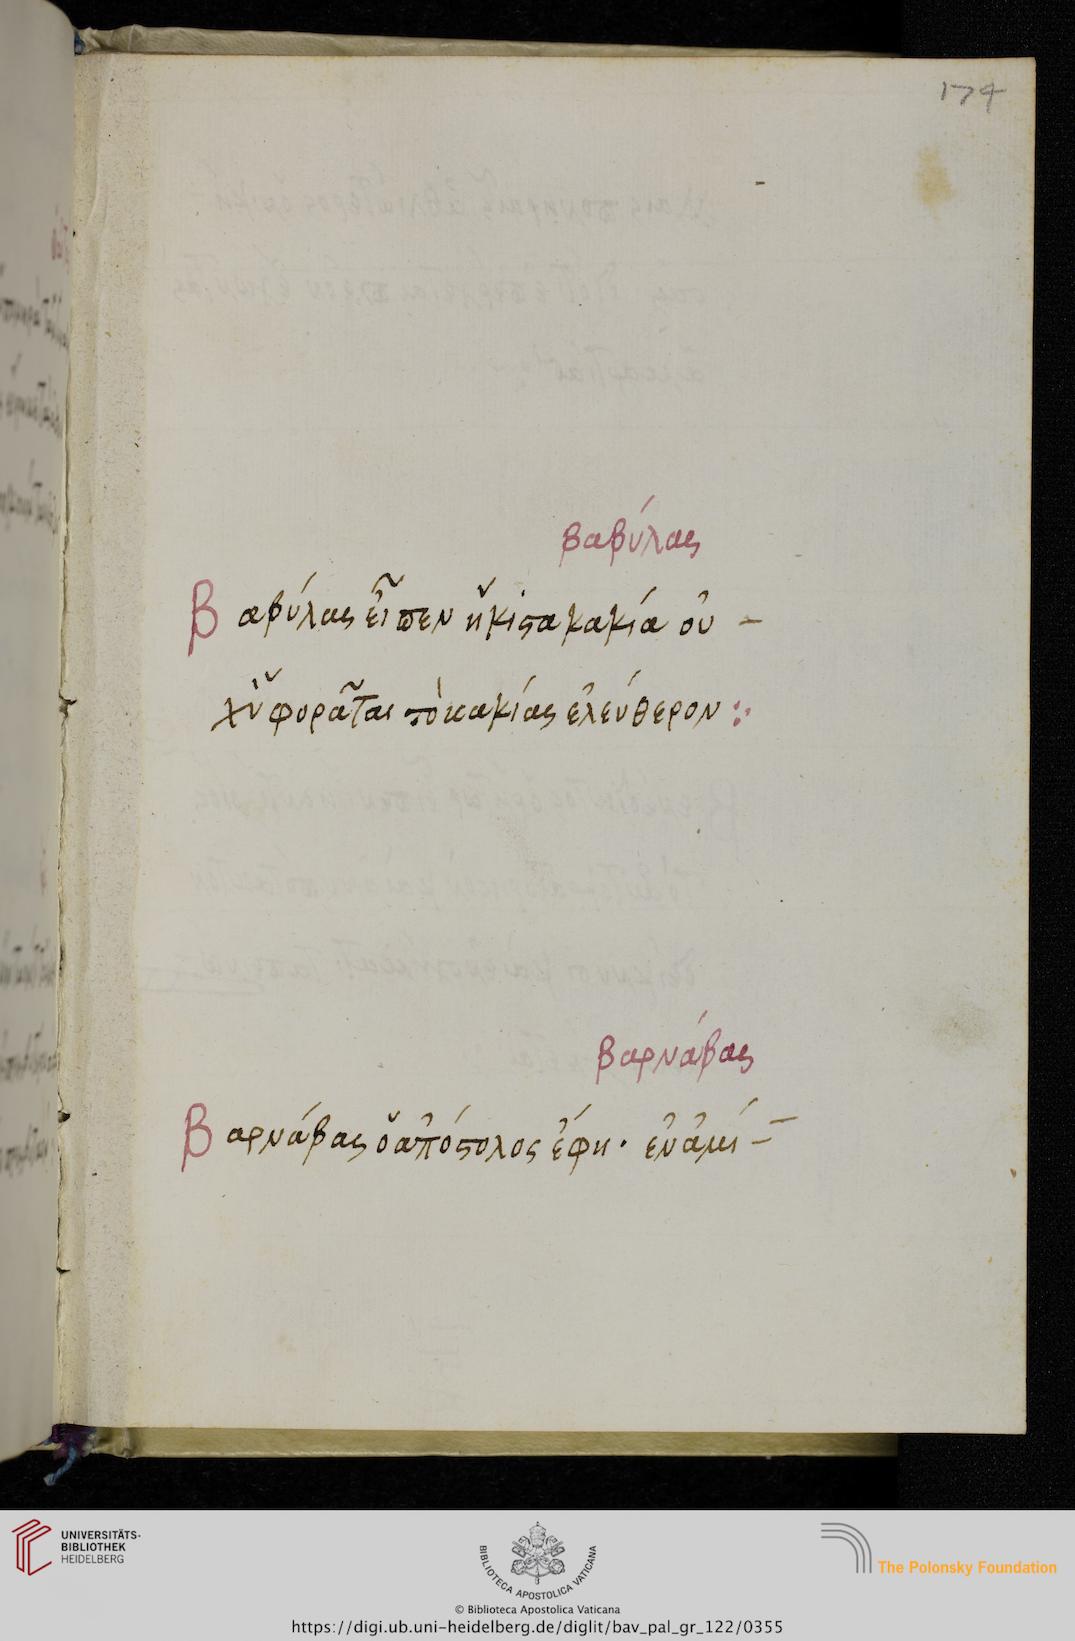 174
βαβύλας
Βαβύλας εἶπεν ἥκιστα κακία οὐ -
χ ὑφορᾶται τὸ κακίας ἐλεύθερον :·
βαρνάβας
Βαρνάβας ὁ ἀπόστολος ἔφη · ἐν ἁμί -
UNIVERSITÄTS-
BIBLIOTHEK
HEIDELBERG
BIBLIOTECA APOSTOLICA VATICANA
The Polonsky Foundation
© Biblioteca Apostolica Vaticana
https://digi.ub.uni-heidelberg.de/diglit/bav_pal_gr_122/0355